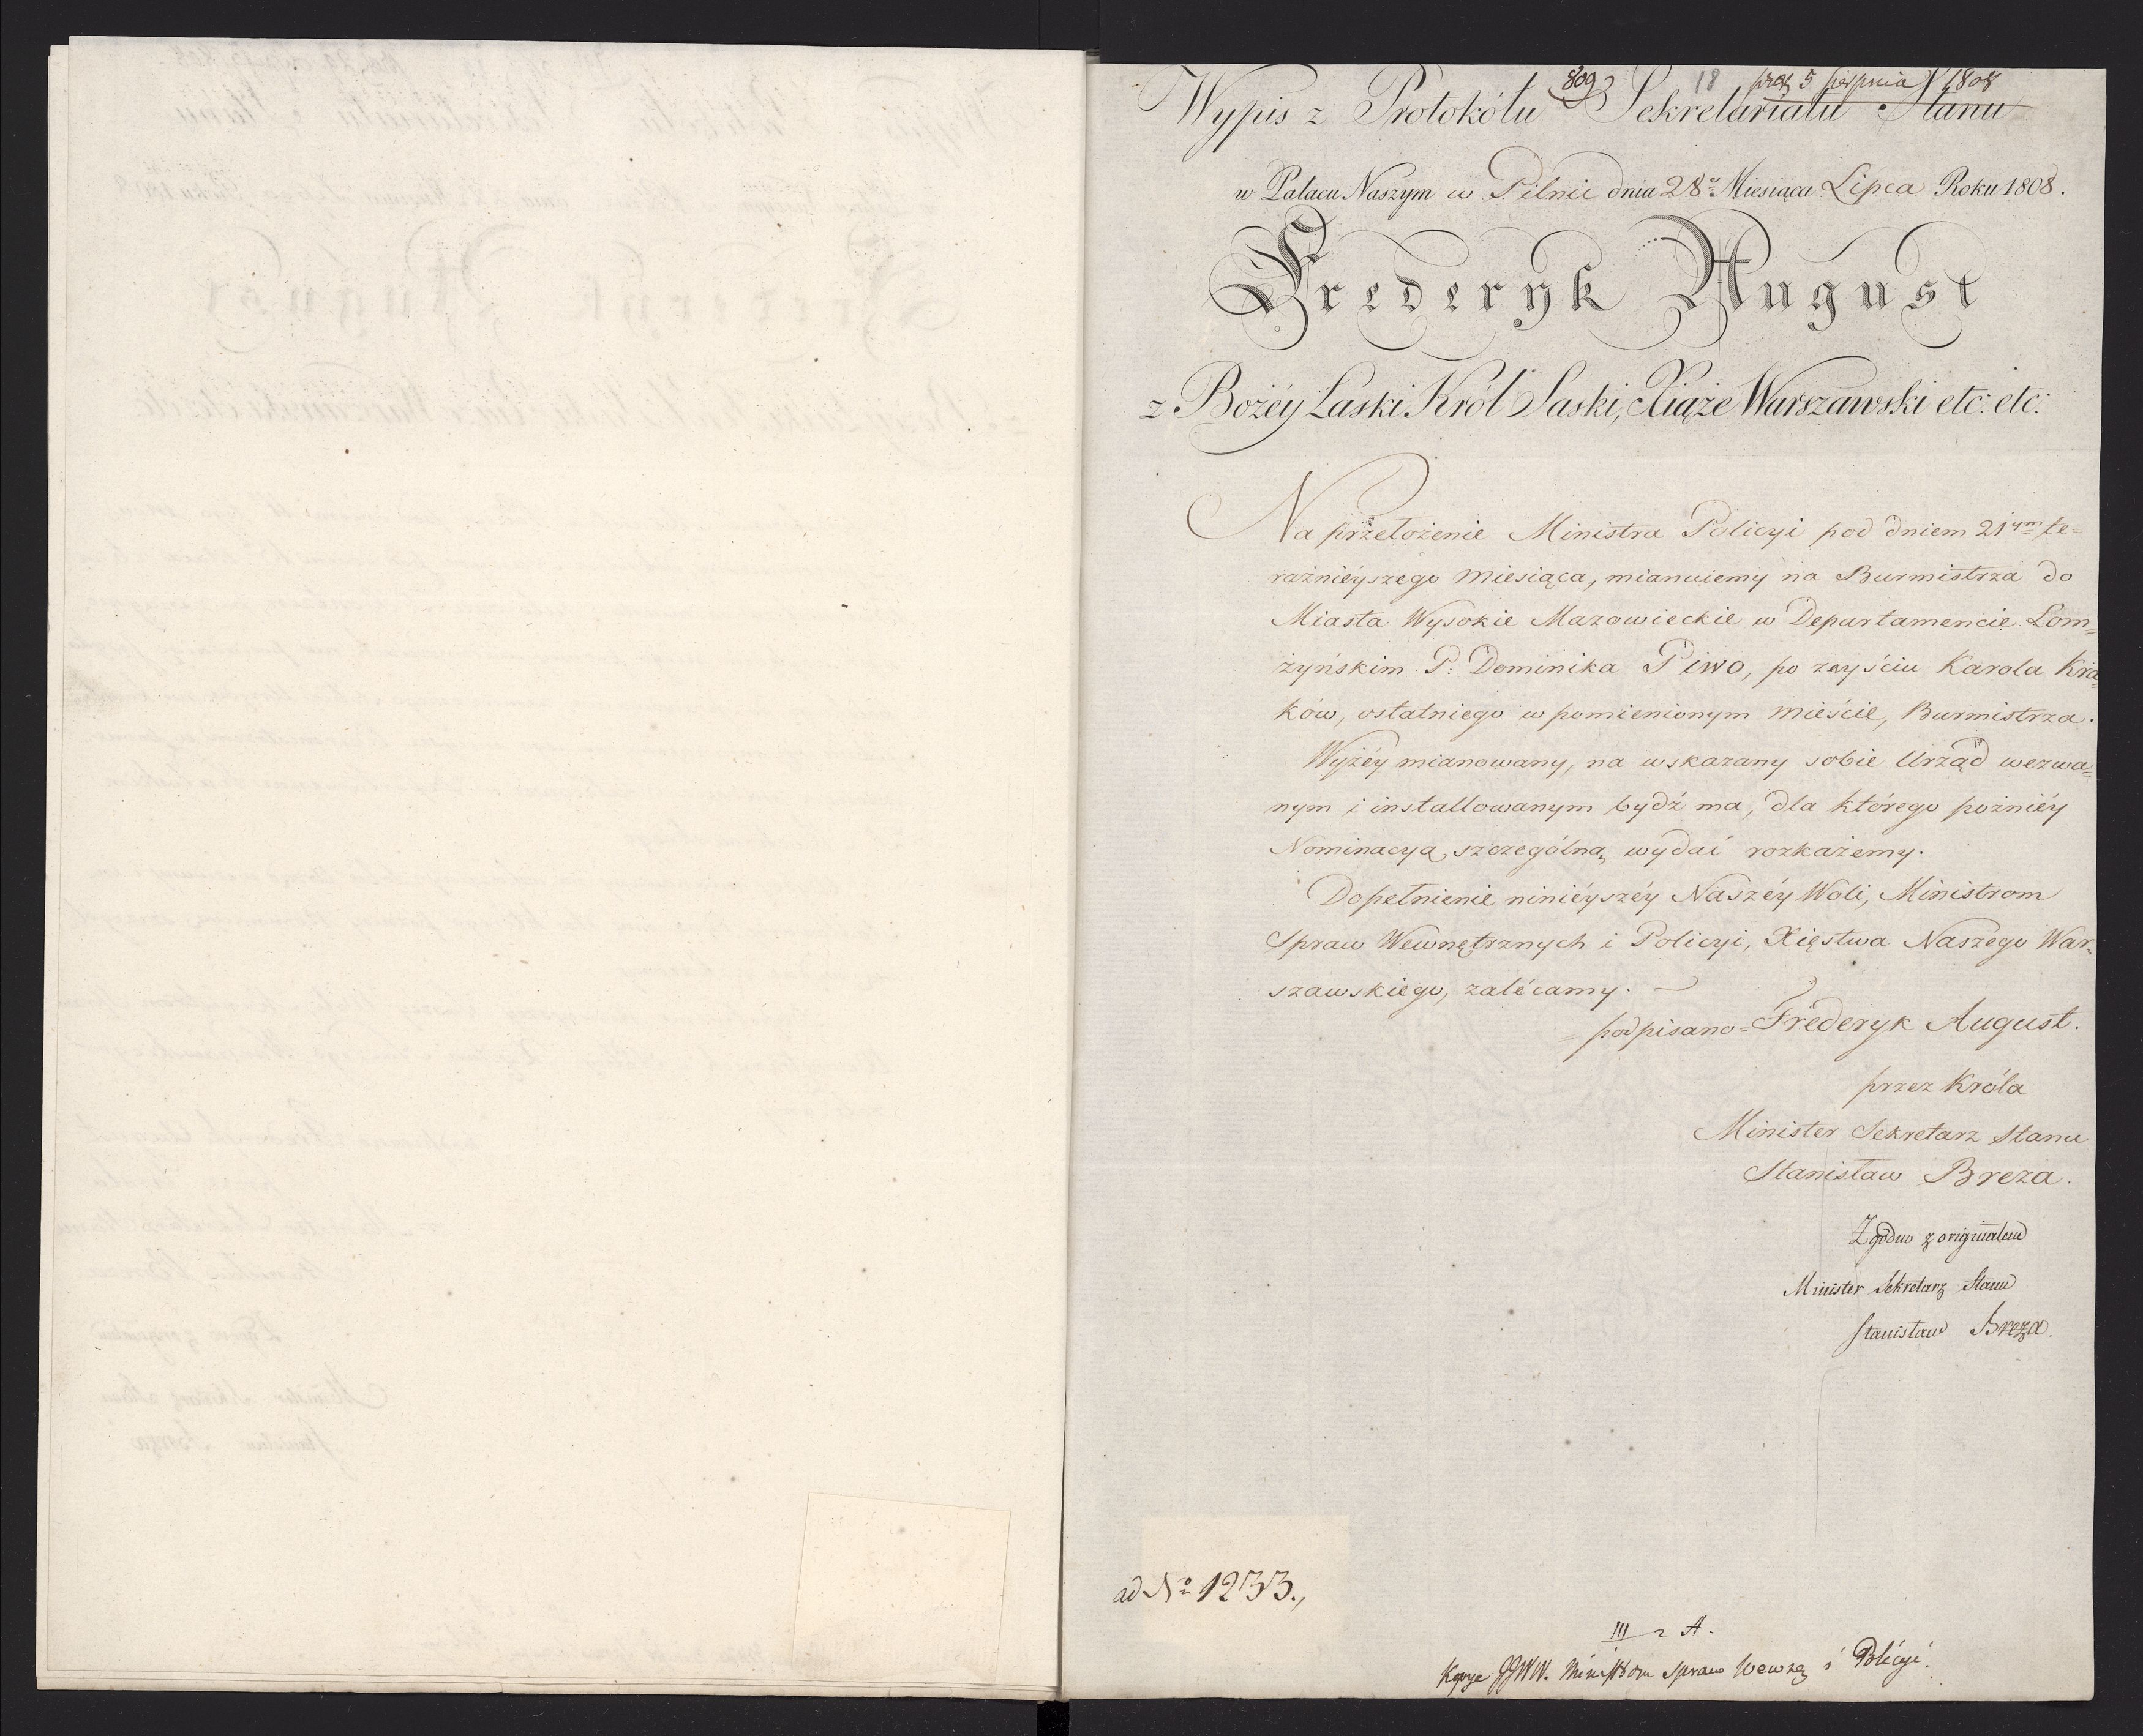 809
18
prez 5 sierpnia 1808
Wypis z Protokółu Sekretariatu Stanu
w Pałacu Naszym w Pilnic dnia 28º Miesiąca Lipca Roku 1808.
Frederyk August
z Bożéy Łaski Król Saski, Xiąże Warszawski etc: etc:
Na przełożenie Ministra Policyi pod dniem 21ym te=
raźniéyszego miesiąca, mianuiemy na Burmistrza do
Miasta Wysokie Mazowieckie w Departamencie Łom=
żyńskim P: Dominika Piwo, po zeyściu Karola Kra=
ków, ostatniego w pomienionym mieście, Burmistrza.
Wyżéy mianowany, na wskazany sobie Urząd wezwa=
nym i installowanym bydź ma, dla którego poźniéy
Nominacyą szczególną wydać rozkażemy.
Dopełnienie niniéyszéy Naszéy Woli, Ministrom
Spraw Wewnętrznych i Policyi, Xięstwa Naszego War=
szawskiego, zalécamy.
podpisano = Frederyk August.
przez Króla
Minister Sekretarz Stanu
Stanisław Breza.
Zgodno z originałem
Minister Sekretarz Stanu
Stanisław Breza.
ad Nº 1233.,
III 2 A.
Kopye JJWW. Ministrom Spraw Wewną i Policyi.